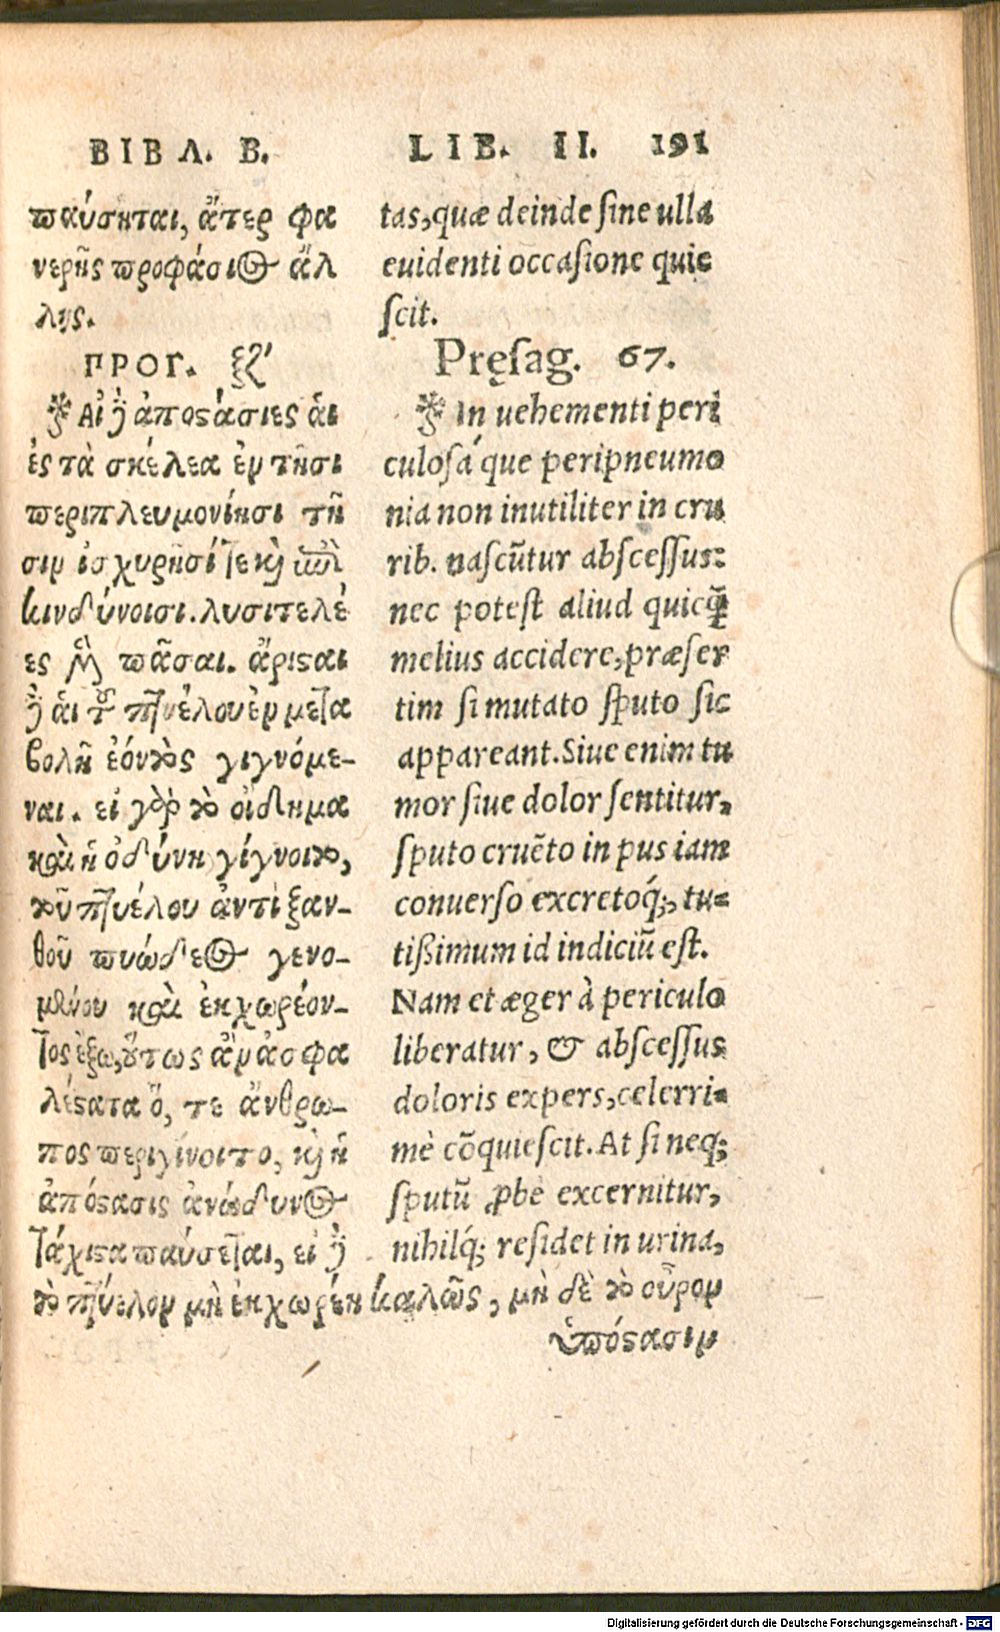 ΒΙΒΛ. Β.
παύσηται, ἄτερ φα
νερῆς προφάσιος ἄλ
λης.
ΠΡΟΓ. ξζʹ
Αἱ δὲ ἀποστάσιες ἁι
ἐς τὰ σκέλεα ἐν τῆσι
περιπλευμονίησι τῆ
σιν ἰσχυρῆσί τε καὶ ἐπι
κινδύνοισι. λυσιτελέ
ες μὲν πᾶσαι. ἄρισται
δὲ ἁι τοῦ πτυέλου ἐν μετα
βολῆ ἐόντος γιγνόμε-
ναι. εἰ γὰρ τὸ οἴδημα
καὶ ἡ ὀδύνη γίγνοιτο,
τοῦ πτυέλου ἀντὶ ξαν-
θοῦ πυώδεος γενο-
μένου καὶ ἐκχωρέον-
τος ἔξω, οὕτως ἂν ἀσφα
λέστατα ὅ, τε ἄνθρω-
πος περιγίνοιτο, καὶ ἡ
ἀπόστασις ἀνώδυνος
τάχιστα παύσεται, εἰ δὲ
τὸ πτύελον μὴ ἐκχωρέη καλῶς, μὴ δὲ τὸ οὖρον
ὑπόστασιν
LIB. II. 191
tas, quæ deinde sine ulla
euidenti occasione quie
scit.
Pręsag. 67.
In uehementi peri
culosá que peripneumo
nia non inutiliter in cru
rib. nascũtur abscessus:
nec potest aliud quicq̃
melius accidere, præser
tim si mutato sputo sic
appareant. Siue enim tu
mor siue dolor sentitur,
sputo cruẽto in pus iam
conuerso excretoq́;, tu-
tißimum id indiciũ est.
Nam et æger à periculo
liberatur, & abscessus
doloris expers, celerri-
mè cõquiescit. At si neq;
sputũ ꝓbè excernitur,
nihilq́; residet in urina,
Digitalisierung gefördert durch die Deutsche Forschungsgemeinschaft - DFG